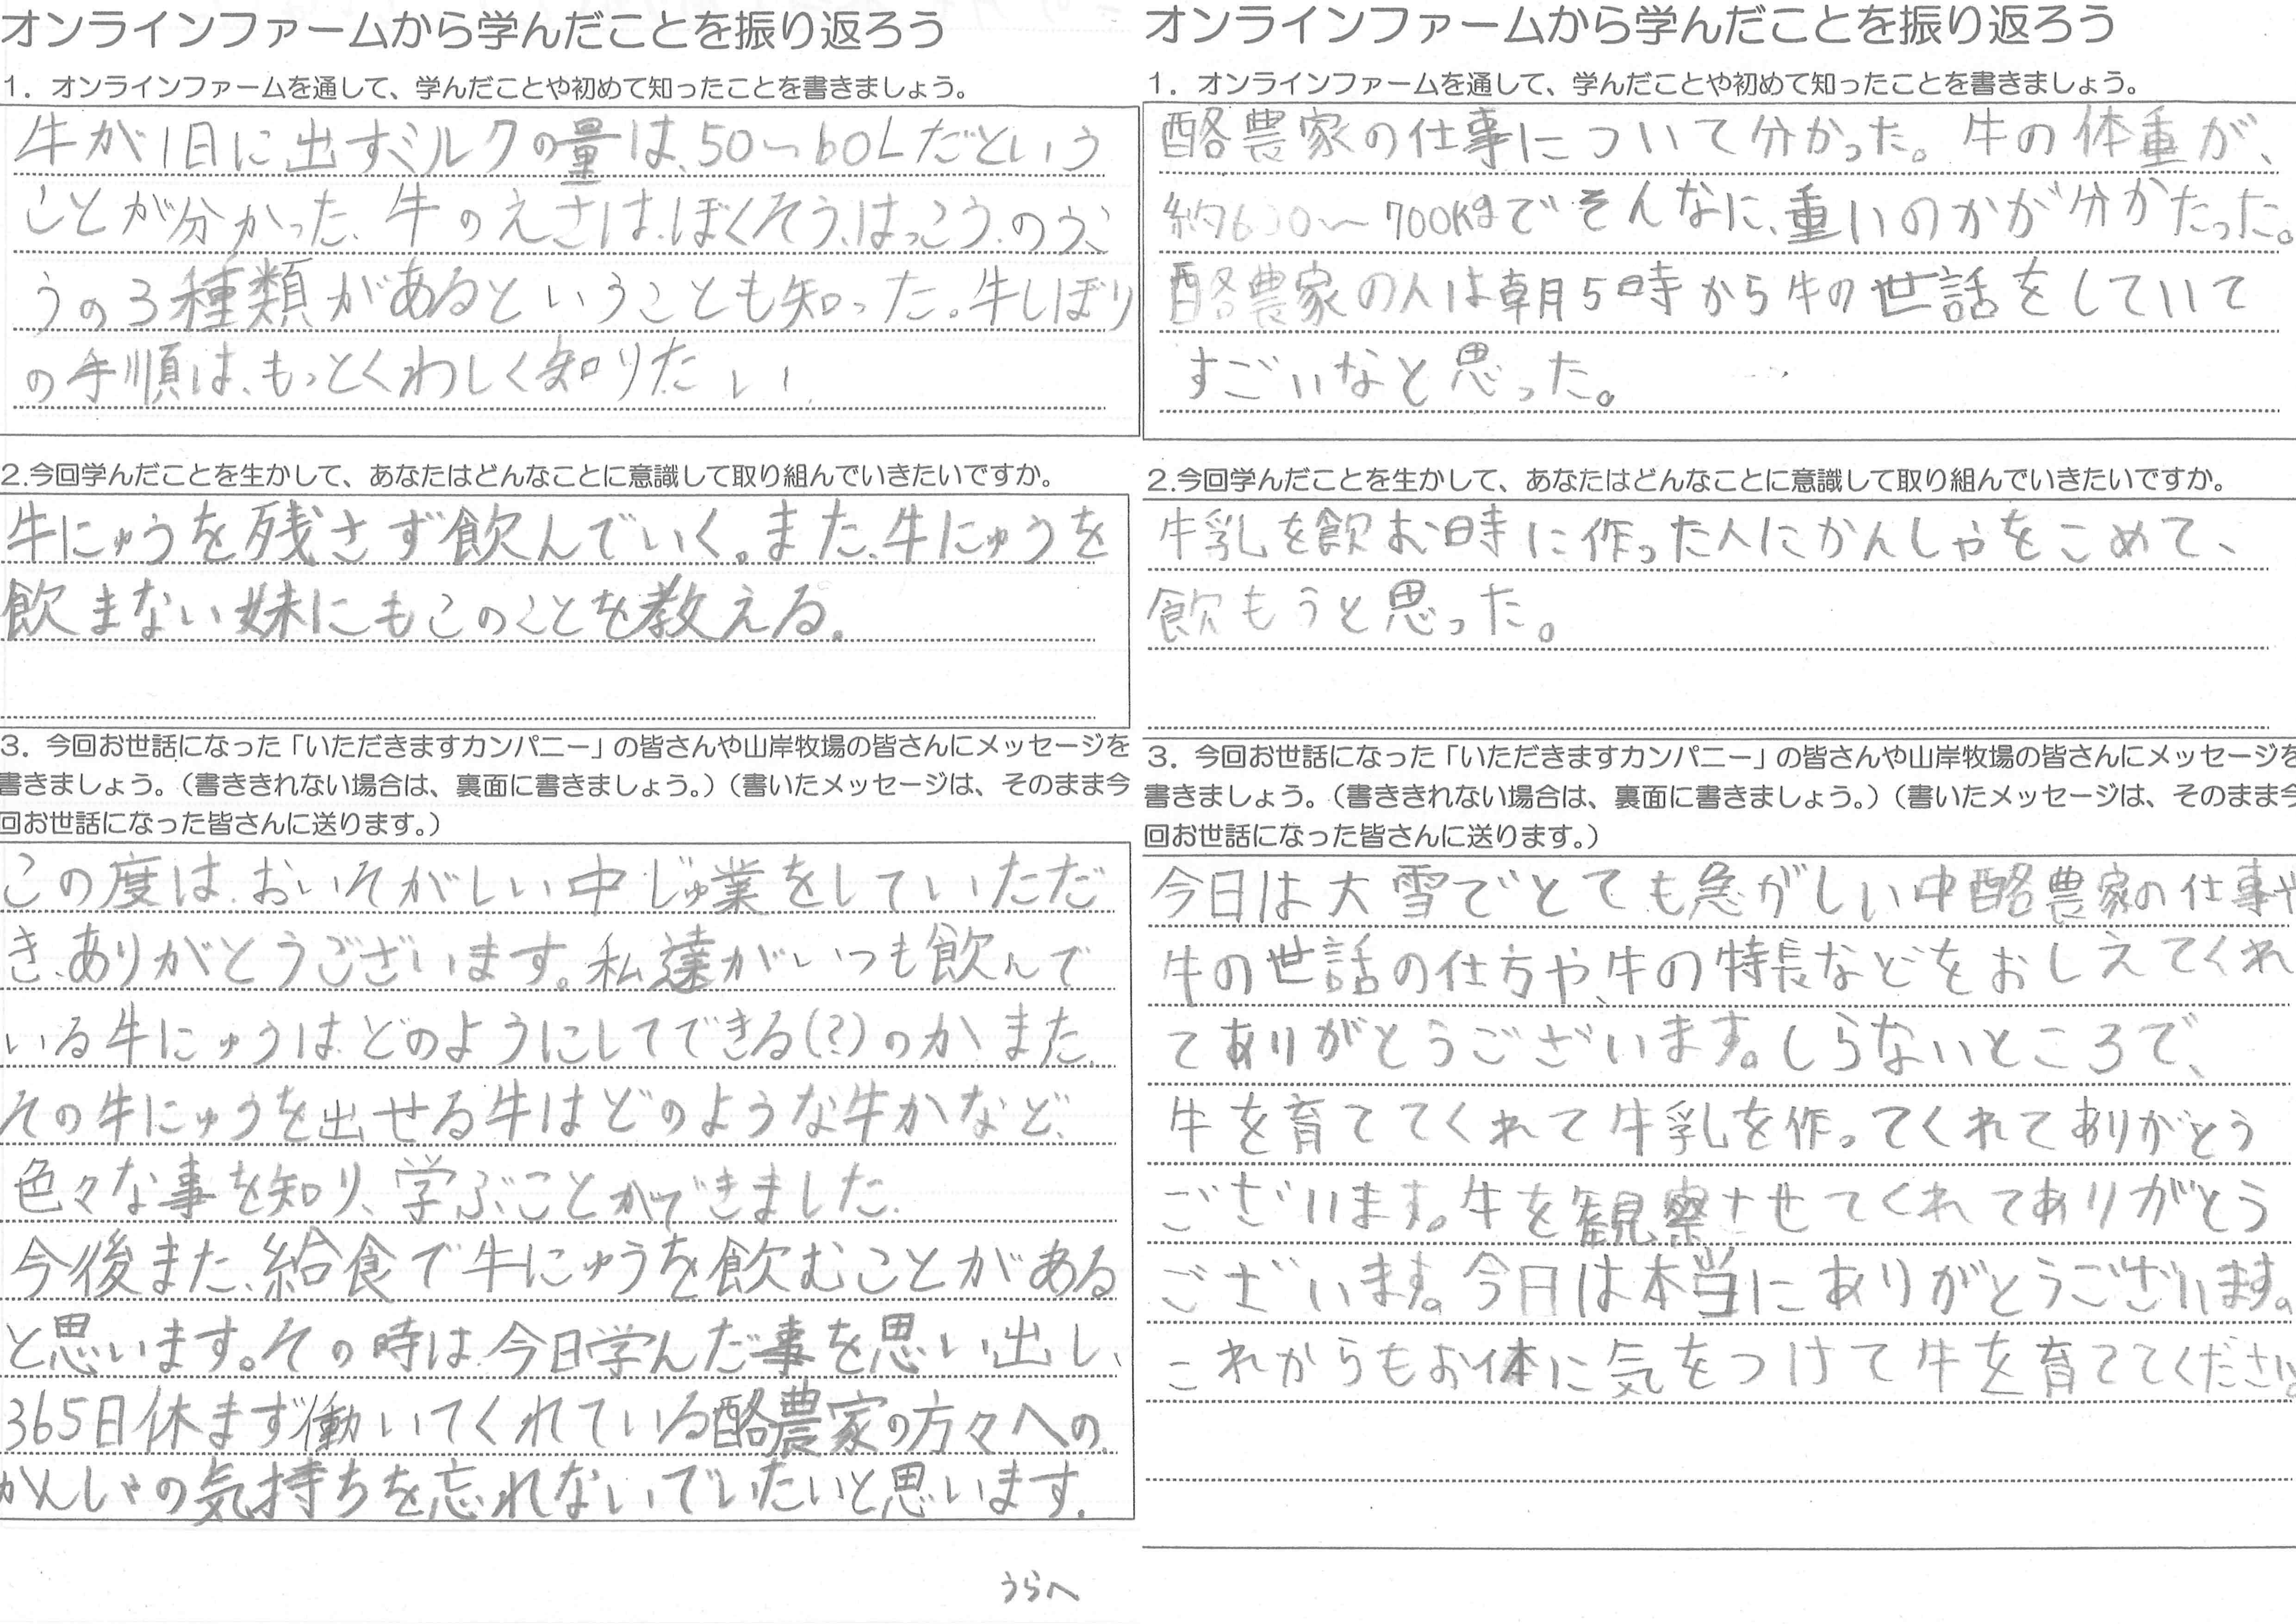 オンラインファームから学んだことを振り返ろう
1．オンラインファームを通して、学んだことや初めて知ったことを書きましょう。
牛が1日に出すミルクの量は、50〜60Lだという
ことが分かった、牛のえさは、ぼくそう、はっこう、のう、
うの3種類があるということも知った。牛しぼり
の手順は、もっとくわしく知りたい
2.今回学んだことを生かして、あなたはどんなことに意識して取り組んでいきたいですか。
牛にゅうを残さず飲んでいく。また、牛にゅうを
飲まない妹にもこのことを教える。
3．今回お世話になった「いただきますカンパニー」の皆さんや山岸牧場の皆さんにメッセージを
書きましょう。（書ききれない場合は、裏面に書きましょう。）（書いたメッセージは、そのまま今
回お世話になった皆さんに送ります。）
この度は、おいそがしい中じゅ業をしていただ
き、ありがとうございます。私達がいつも飲んで
いる牛にゅうは、どのようにしてできる(?)のか、また、
その牛にゅうを出せる牛はどのような牛かなど、
色々な事を知り、学ぶことができました。
今後また、給食で牛にゅうを飲むことがある
と思います。その時は、今日学んだ事を思い出し、
365日休まず働いてくれている酪農家の方々への
かんしゃの気持ちを忘れないでいたいと思います。
うらへ
オンラインファームから学んだことを振り返ろう
1．オンラインファームを通して、学んだことや初めて知ったことを書きましょう。
酪農家の仕事について分かった。牛の体重が、
約600〜700Kgでそんなに、重いのかが分かたった。
酪農家の人は朝5時から牛の世話をしていて
すごいなと思った。
2.今回学んだことを生かして、あなたはどんなことに意識して取り組んでいきたいですか。
牛乳を飲お時に作った人にかんしゃをこめて、
飲もうと思った。
3．今回お世話になった「いただきますカンパニー」の皆さんや山岸牧場の皆さんにメッセージを
書きましょう。（書ききれない場合は、裏面に書きましょう。）（書いたメッセージは、そのまま今
回お世話になった皆さんに送ります。）
今日は大雪でとても急がしい中酪農家の仕事や
牛の世話の仕方や、牛の特長などをおしえてくれ
てありがとうございます。しらないところで、
牛を育ててくれて牛乳を作ってくれてありがとう
ございます。牛を観察させてくれてありがとう
ございます。今日は本当にありがとうございます。
これからもお体に気をつけて牛を育ててください。